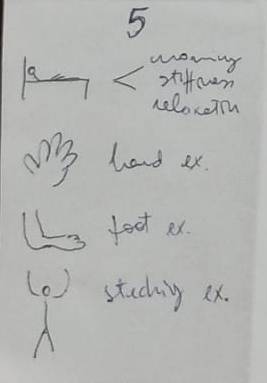 5
morning
stiffness
relaxation
hand ex.
foot ex.
streching ex.